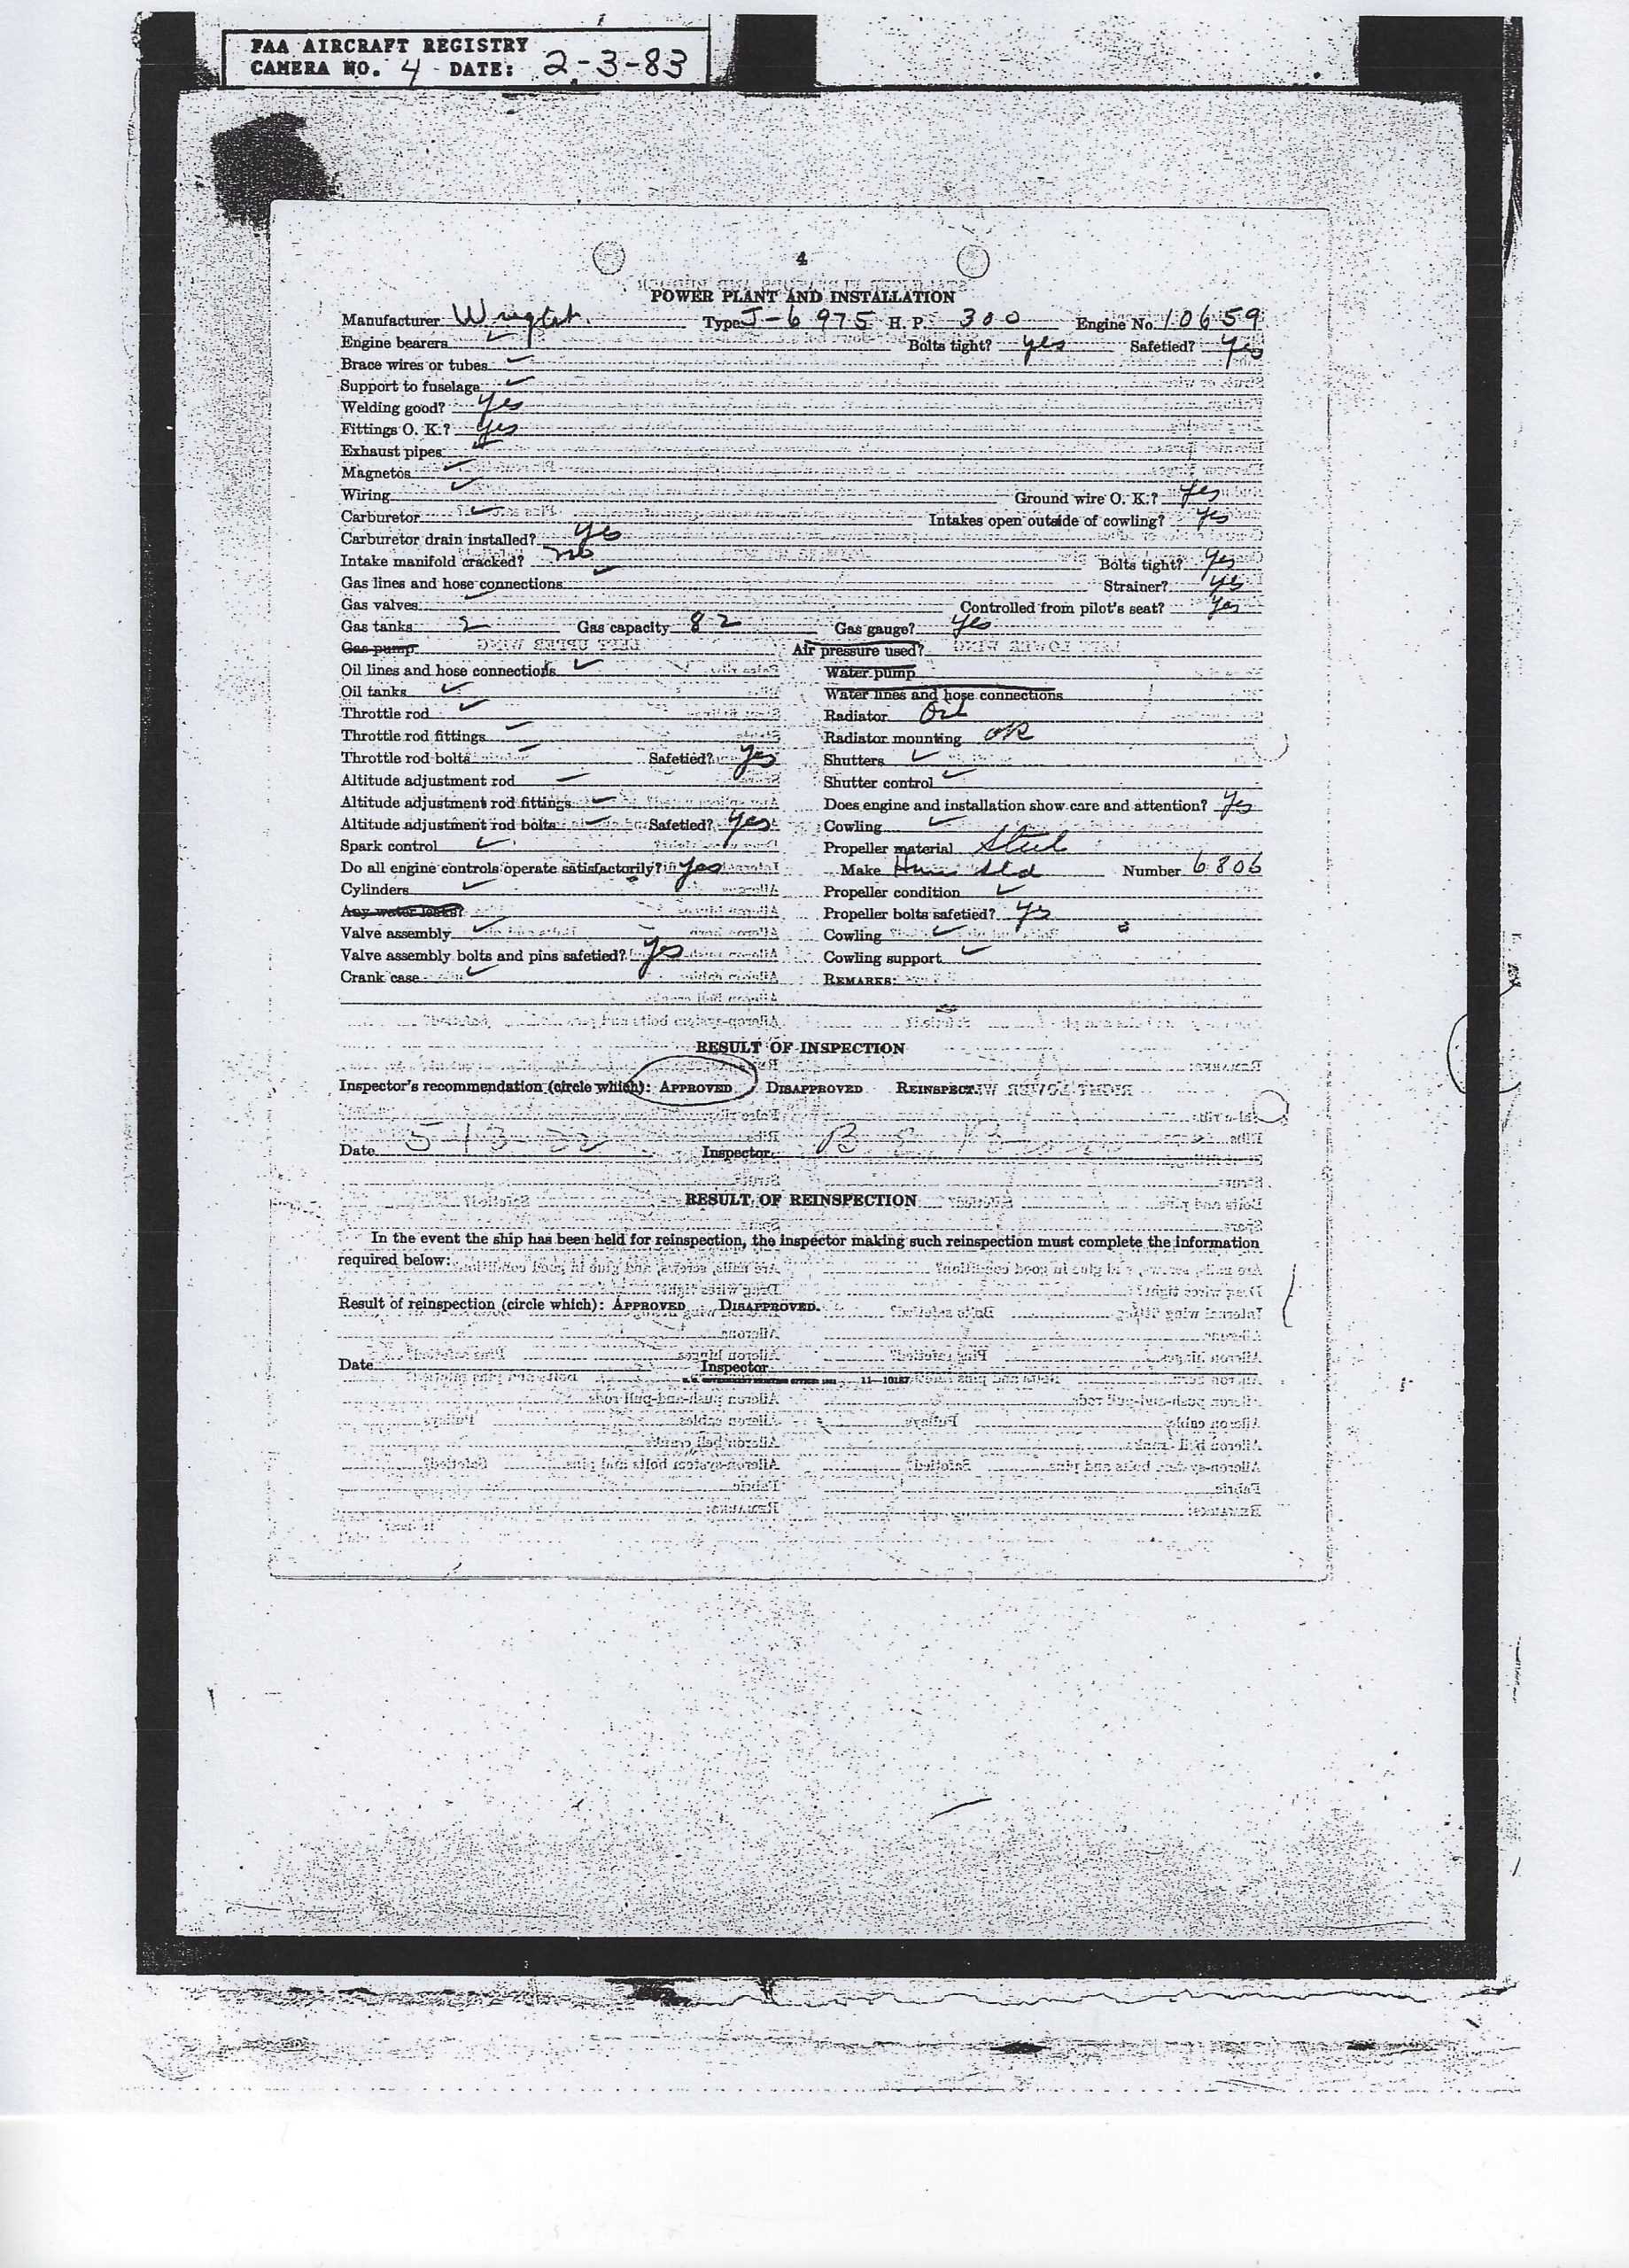 FAA AIRCRAFT REGISTRY
CAMERA NO. 4 DATE: 2-3-83
4
POWER PLANT AND INSTALLATION
Manufacturer Wright Type J-6 975 H. P. 300 Engine No. 10659
Engine bearers ✓ Bolts tight? yes Safetied? yes
Brace wires or tubes ✓
Support to fuselage ✓
Welding good? yes
Fittings O. K.? yes
Exhaust pipes ✓
Magnetos ✓
Wiring ✓ Ground wire O. K.? yes
Carburetor ✓ Intakes open outside of cowling? yes
Carburetor drain installed? yes
Intake manifold cracked? no Bolts tight? yes
Gas lines and hose connections ✓ Strainer? yes
Gas valves ✓ Controlled from pilot's seat? yes
Gas tanks 2 Gas capacity 82 Gas gauge? yes
Gas pump Air pressure used?
Oil lines and hose connections ✓ Water pump
Oil tanks ✓ Water lines and hose connections
Throttle rod ✓ Radiator Oil
Throttle rod fittings ✓ Radiator mounting OK
Throttle rod bolts ✓ Safetied? yes Shutters ✓
Altitude adjustment rod ✓ Shutter control ✓
Altitude adjustment rod fittings ✓ Does engine and installation show care and attention? yes
Altitude adjustment rod bolts ✓ Safetied? yes Cowling ✓
Spark control ✓ Propeller material Steel
Do all engine controls operate satisfactorily? yes Make Ham Std Number 6806
Cylinders ✓ Propeller condition ✓
Any water leaks? Propeller bolts safetied? yes
Valve assembly ✓ Cowling ✓
Valve assembly bolts and pins safetied? yes Cowling support ✓
Crank case ✓ REMARKS:
RESULT OF INSPECTION
Inspector's recommendation (circle which): APPROVED DISAPPROVED REINSPECT.
Date 5-13-32 Inspector B
RESULT OF REINSPECTION
In the event the ship has been held for reinspection, the inspector making such reinspection must complete the information
required below:
Result of reinspection (circle which): APPROVED DISAPPROVED.
Date Inspector
11—10187